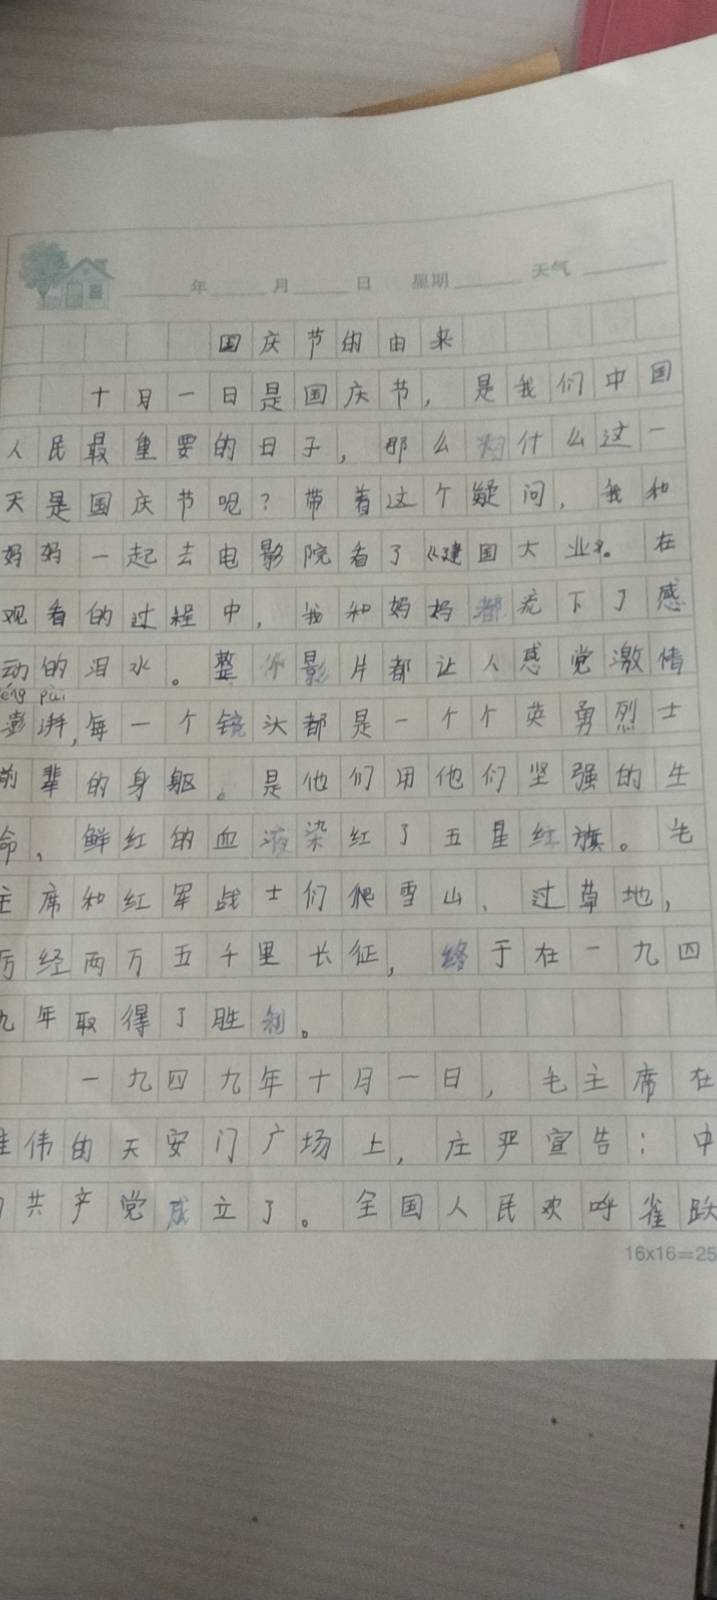 年 月 日 星期 天气
国庆节的由来
十月一日是国庆节，是我们中国
人民最重要的日子，那么为什么这一
天是国庆节呢？带着这个疑问，我和
妈妈一起去电影院看了《建国大业》。在
观看的过程中，我和妈妈都流下了感
动的泪水。整个影片都让人感觉激情
éng pài
澎湃，每一个镜头都是一个个英勇烈士
前辈的身躯。是他们用他们坚强的生
命，鲜红的血液染红了五星红旗。毛
主席和红军战士们爬雪山、过草地，
历经两万五千里长征，终于在一九四
九年取得了胜利。
一九四九年十月一日，毛主席在
伟的天安门广场上，庄严宣告：中
共产党成立了。全国人民欢呼雀跃
16x16=25